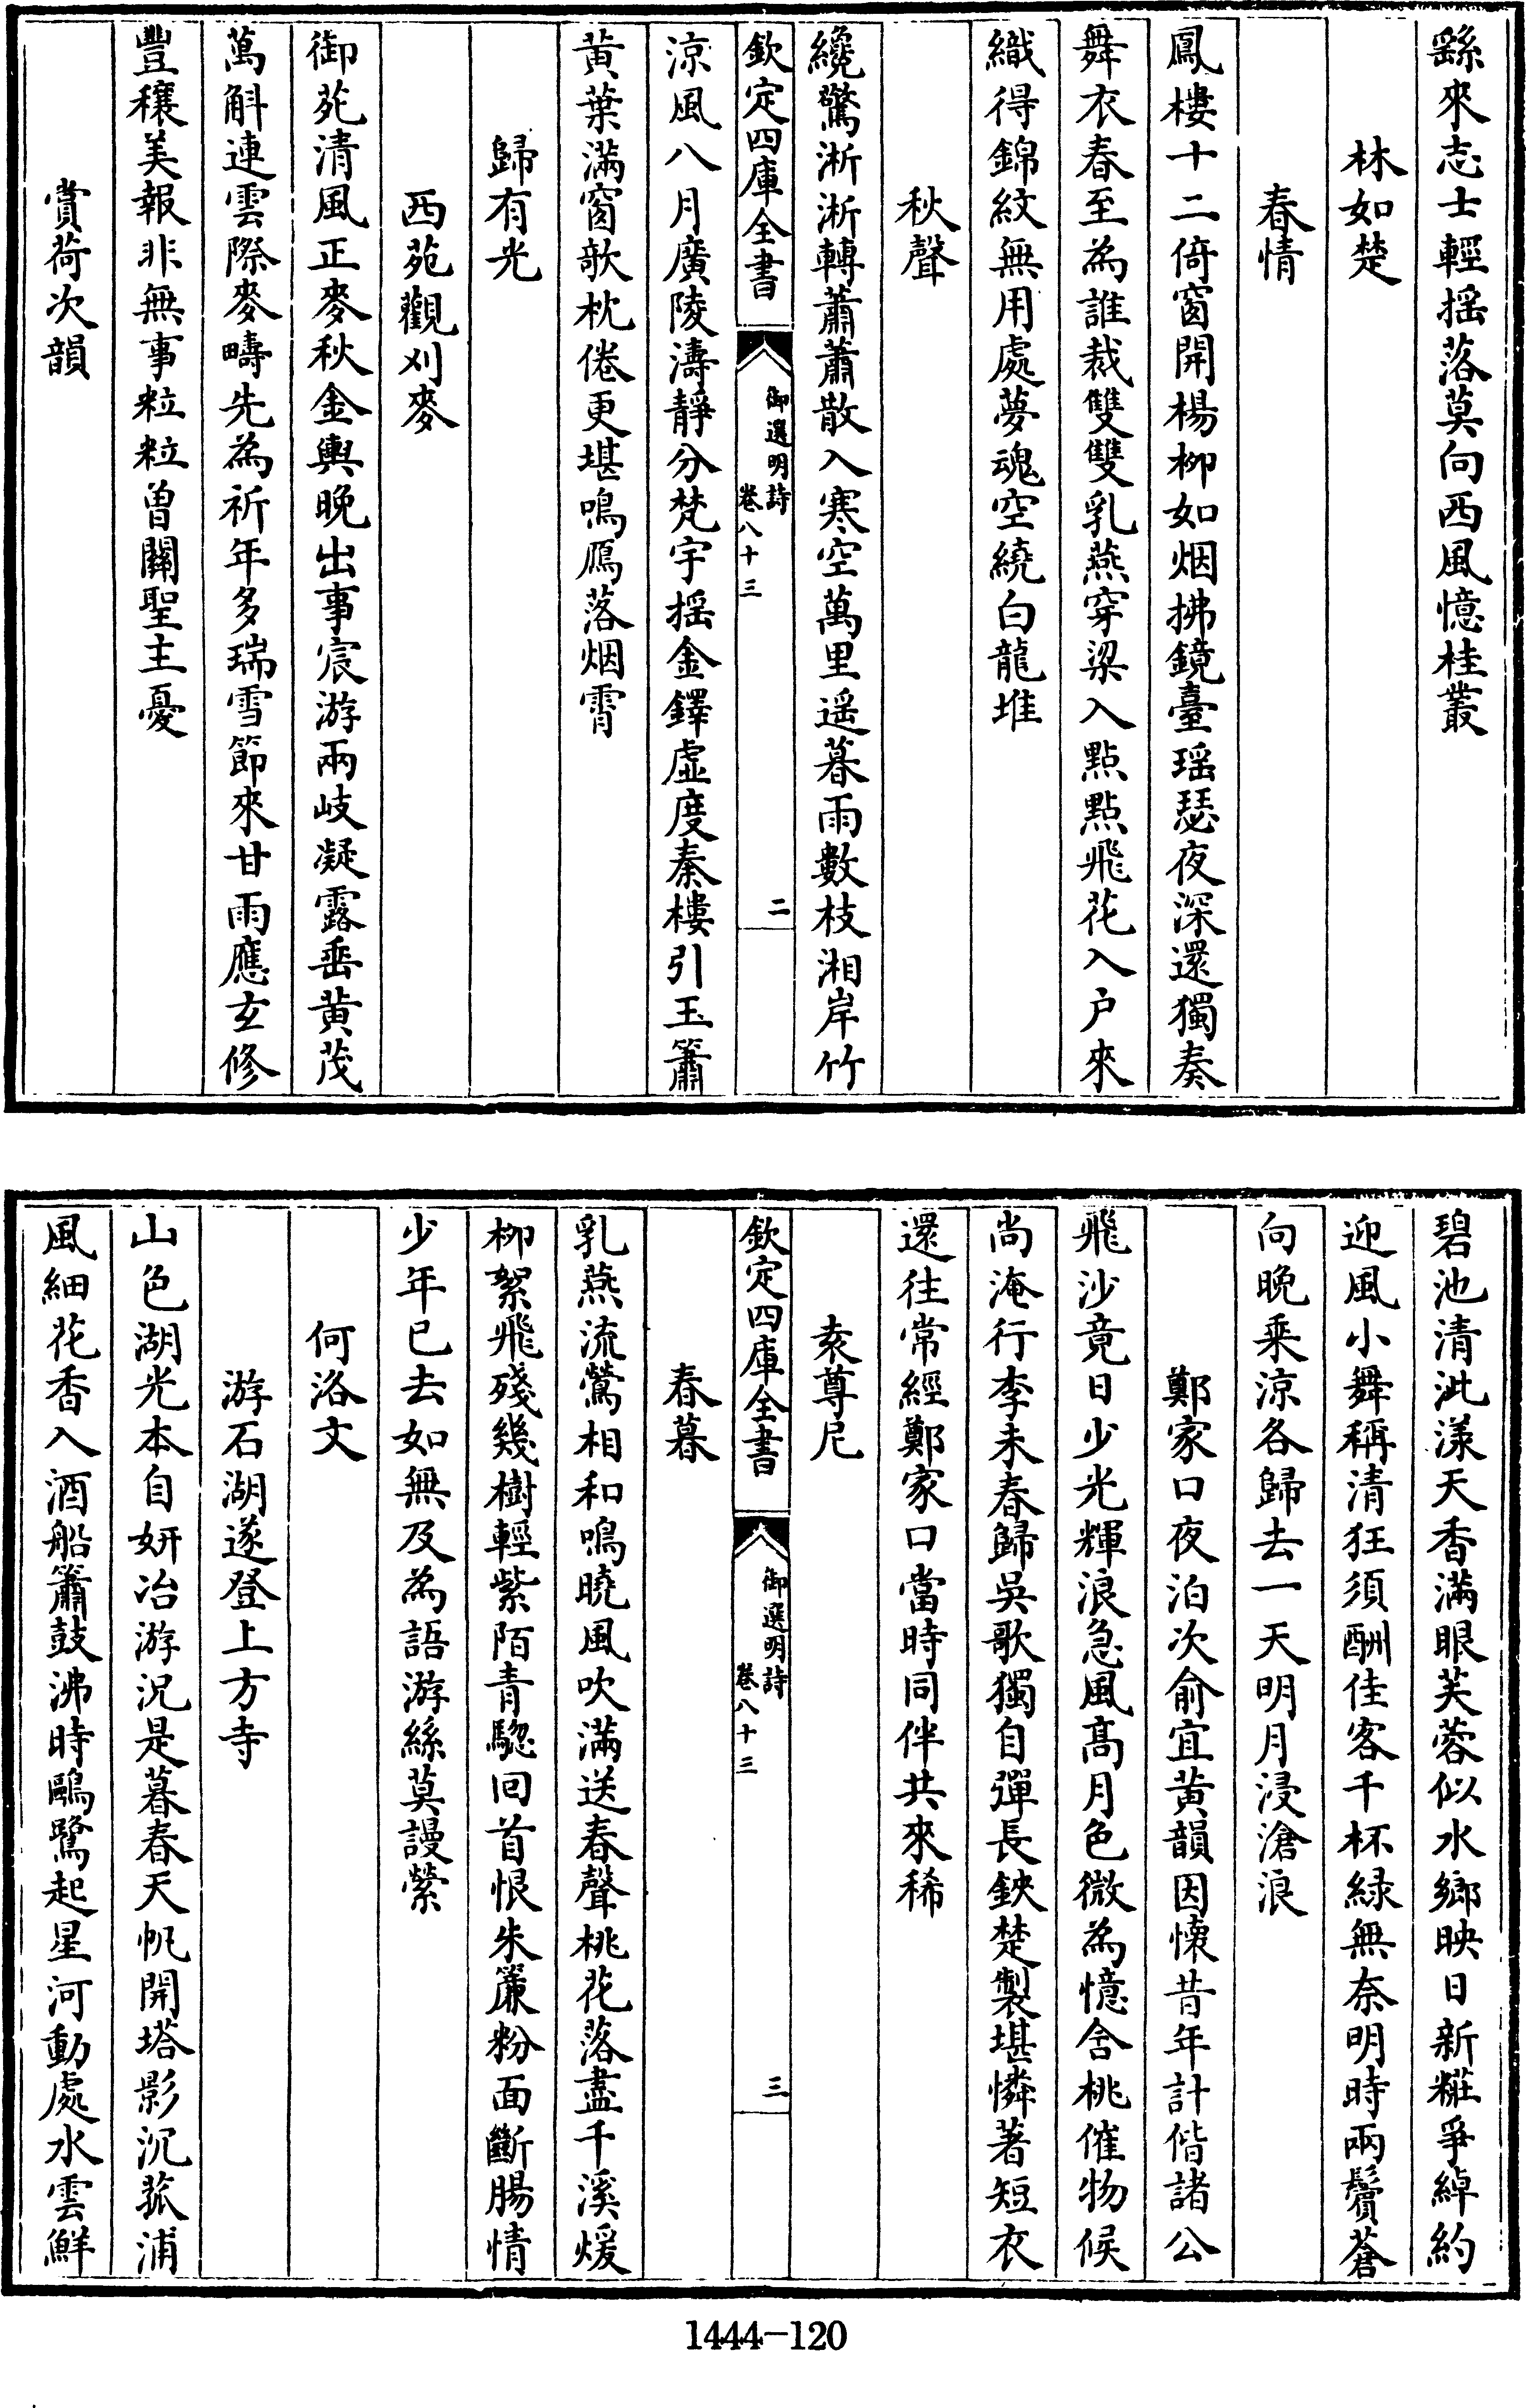 繇來志士輕揺落莫向西風憶桂叢
林如楚
春情
鳳樓十二倚窗開楊柳如烟拂鏡臺瑶瑟夜深還獨奏
舞衣春至為誰裁雙雙乳燕穿梁入點點飛花入户來
織得錦紋無用處夢魂空繞白龍堆
秋聲
纔驚淅淅轉蕭蕭散入寒空萬里遥暮雨數枝湘岸竹
欽定四庫全書
御選明詩
卷八十三
二
涼風八月廣陵濤靜分梵宇揺金鐸虚度秦樓引玉簫
黄葉滿窗欹枕倦更堪鳴鴈落烟霄
歸有光
西苑觀刈麥
御苑清風正麥秋金輿晚出事宸游兩岐凝露垂黄茂
萬斛連雲際麥疇先為祈年多瑞雪節來甘雨應玄修
豐穰美報非無事粒粒曽關聖主憂
賞荷次韻
碧池清泚漾天香滿眼芙蓉似水鄉映日新糚爭綽約
迎風小舞稱清狂須酬佳客千杯緑無奈明時兩鬢蒼
向晚乘涼各歸去一天明月浸滄浪
鄭家口夜泊次俞宜黄韻因懷昔年計偕諸公
飛沙竟日少光輝浪急風髙月色微為憶含桃催物候
尚淹行李未春歸吳歌獨自彈長鋏楚製堪憐著短衣
還往常經鄭家口當時同伴共來稀
袁尊尼
春暮
欽定四庫全書
御選明詩
卷八十三
三
乳燕流鶯相和鳴曉風吹滿送春聲桃花落盡千溪煖
柳絮飛殘幾樹輕紫陌青騘回首恨朱簾粉面斷腸情
少年已去如無及為語游絲莫謾縈
何洛文
游石湖遂登上方寺
山色湖光本自妍冶游况是暮春天帆開塔影沉菰浦
風細花香入酒船簫鼓沸時鷗鷺起星河動處水雲鮮
1444-120